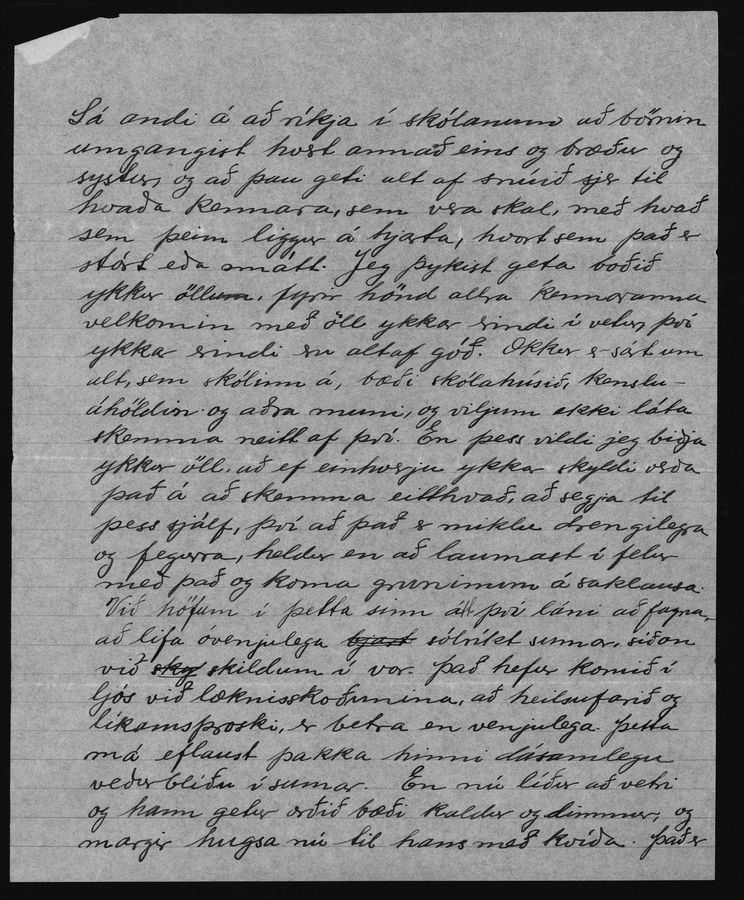 Sá andi á að ríkja í skólanum að börnin
umgangist hvert annað eins og bræður og
systur, og að þau geti alt af snúið sjer til
hvaða kennara, sem vera skal, með hvað
sem þeim liggur á hjarta, hvort sem það er
stórt eða smátt. Jeg þykist geta boðið
ykkur öllum, fyrir hönd allra kennaranna
velkomin með öll ykkar erindi í vetur, því
ykkar erindi eru altaf góð. Okkur er sárt um
alt, sem skólinn á, bæði skólahúsið, kenslu-
áhöldin og aðra muni, og viljum ekki láta
skemma neitt af því. En þess vildi jeg biðja
ykkur öll, að ef einhverju ykkar skyldi verða
það á að skemma eitthvað, að segja til
þess sjálf, því að það er miklu drengilegra
og fegurra, heldur en að laumast í felur
með það og koma gruninum á saklausa.
Við höfum í þetta sinn því láni að fagna,
að lifa óvenjulega bjart sólríkt sumar, síðan
við sky skildum í vor. Það hefur komið í
ljós við læknisskoðunina, að heilsufarið og
líkamsþroski, er betra en venjulega. Þetta
má eflaust þakka hinni dásamlegu
veðurblíðu í sumar. En nú líður að vetri
og hann getur orðið bæði kaldur og dimmur, og
margir hugsa nú til hans með kvíða. Það er